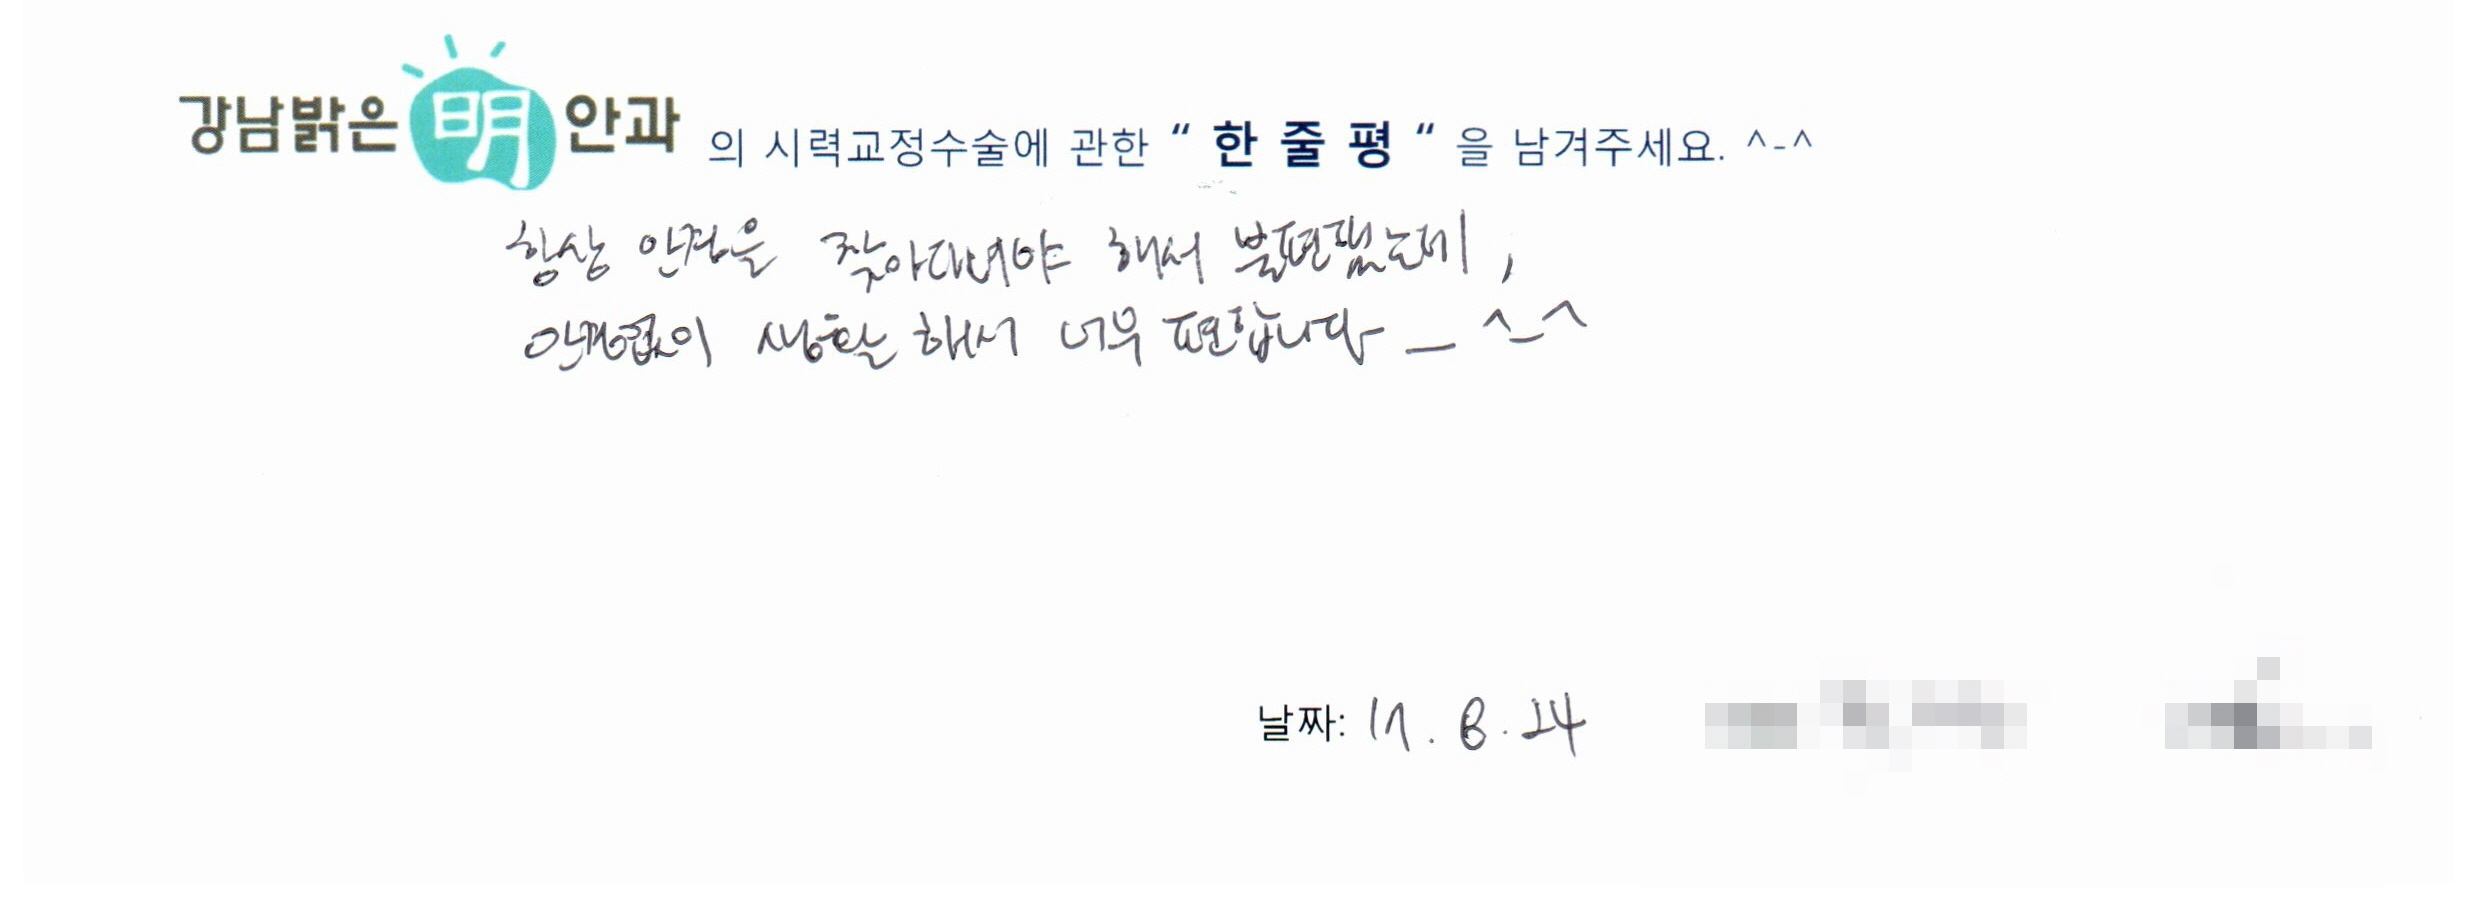 강남밝은明안과 의 시력교정수술에 관한 “ 한 줄 평 “ 을 남겨주세요. ^-^
항상 안경을 찾아다녀야 해서 불편했는데,
안경없이 생활 해서 너무 편합니다_ ^_^
날짜: 17. 8. 24